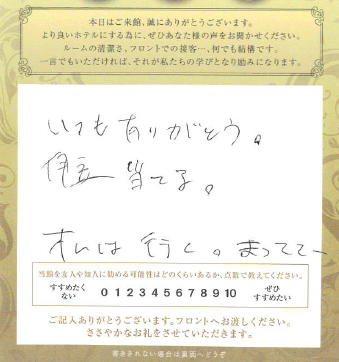 本日はご来館、誠にありがとうございます。
より良いホテルにする為に、ぜひあなた様の声をお聞かせください。
ルームの清潔さ、フロントでの接客…、何でも結構です。
一言でもいただければ、それが私たちの学びとなり励みになります。
いつもありがとう。
伊豆 当てる。
オレは 行く。まっててー
当館を友人や知人に勧める可能性はどのくらいあるか、点数で教えてください。
すすめたくない 0 1 2 3 4 5 6 7 8 9 10 ぜひすすめたい
ご記入ありがとうございます。フロントへお渡しください。
ささやかなお礼をさせていただきます。
書ききれない場合は裏面へどうぞ